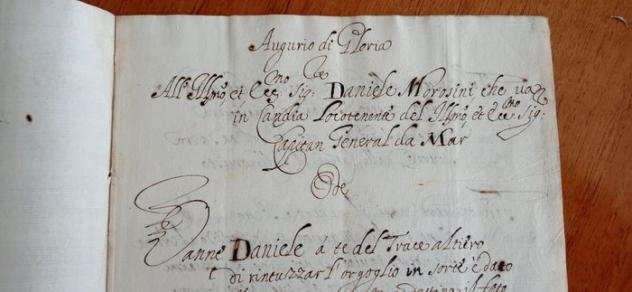 Augurio di Gloria
All' Illmo et Eccmo Sigr Daniele Morosini che va
in Candia Locotenente del Illmo et Eccmo Sigr
Capitan General da Mar
Ode
Vanne Daniele à te del Trace altiero
Di rintuzzar l'orgoglio in sorte è dato
Destina il fato